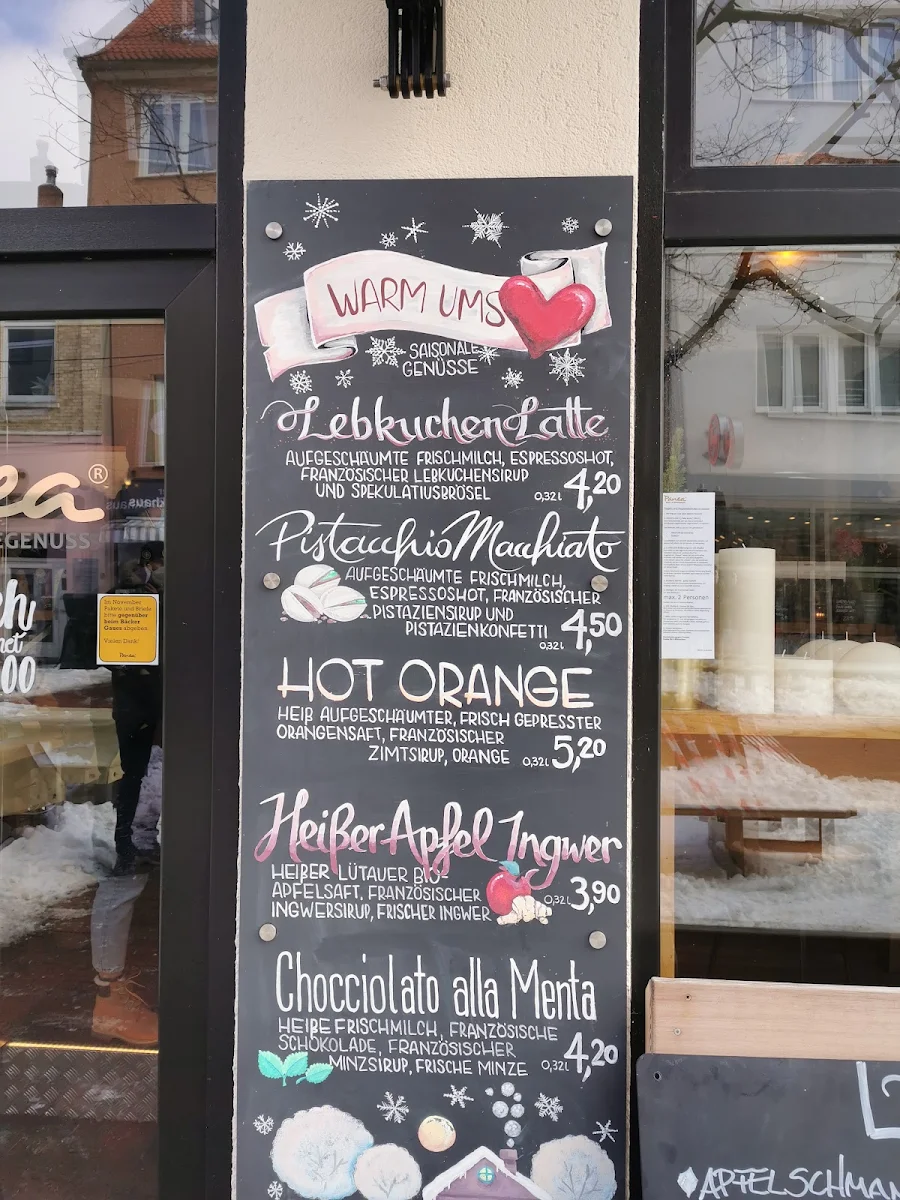 WARM UMS
SAISONALE
GENÜSSE
Lebkuchen Latte
AUFGESCHÄUMTE FRISCHMILCH, ESPRESSOSHOT,
FRANZÖSISCHER LEBKUCHENSIRUP
UND SPEKULATIUSBRÖSEL 0,32l 4,20
Pistacchio Macchiato
AUFGESCHÄUMTE FRISCHMILCH,
ESPRESSOSHOT, FRANZÖSISCHER
PISTAZIENSIRUP UND
PISTAZIENKONFETTI 0,32l 4,50
HOT ORANGE
HEIß AUFGESCHÄUMTER, FRISCH GEPRESSTER
ORANGENSAFT, FRANZÖSISCHER
ZIMTSIRUP, ORANGE 0,32l 5,20
Heißer Apfel Ingwer
HEIßER LÜTAUER BIO
APFELSAFT, FRANZÖSISCHER
INGWERSIRUP, FRISCHER INGWER 0,32l 3,90
Chocciolato alla Menta
HEIßE FRISCHMILCH, FRANZÖSISCHE
SCHOKOLADE, FRANZÖSISCHER
MINZSIRUP, FRISCHE MINZE 0,32l 4,20
ea®
EGENUSS
00
Im November
Pakete und Briefe
bitte gegenüber
beim Bäcker
abgeben.
Vielen Dank!
max. 2 Personen
APFELSCHMAN